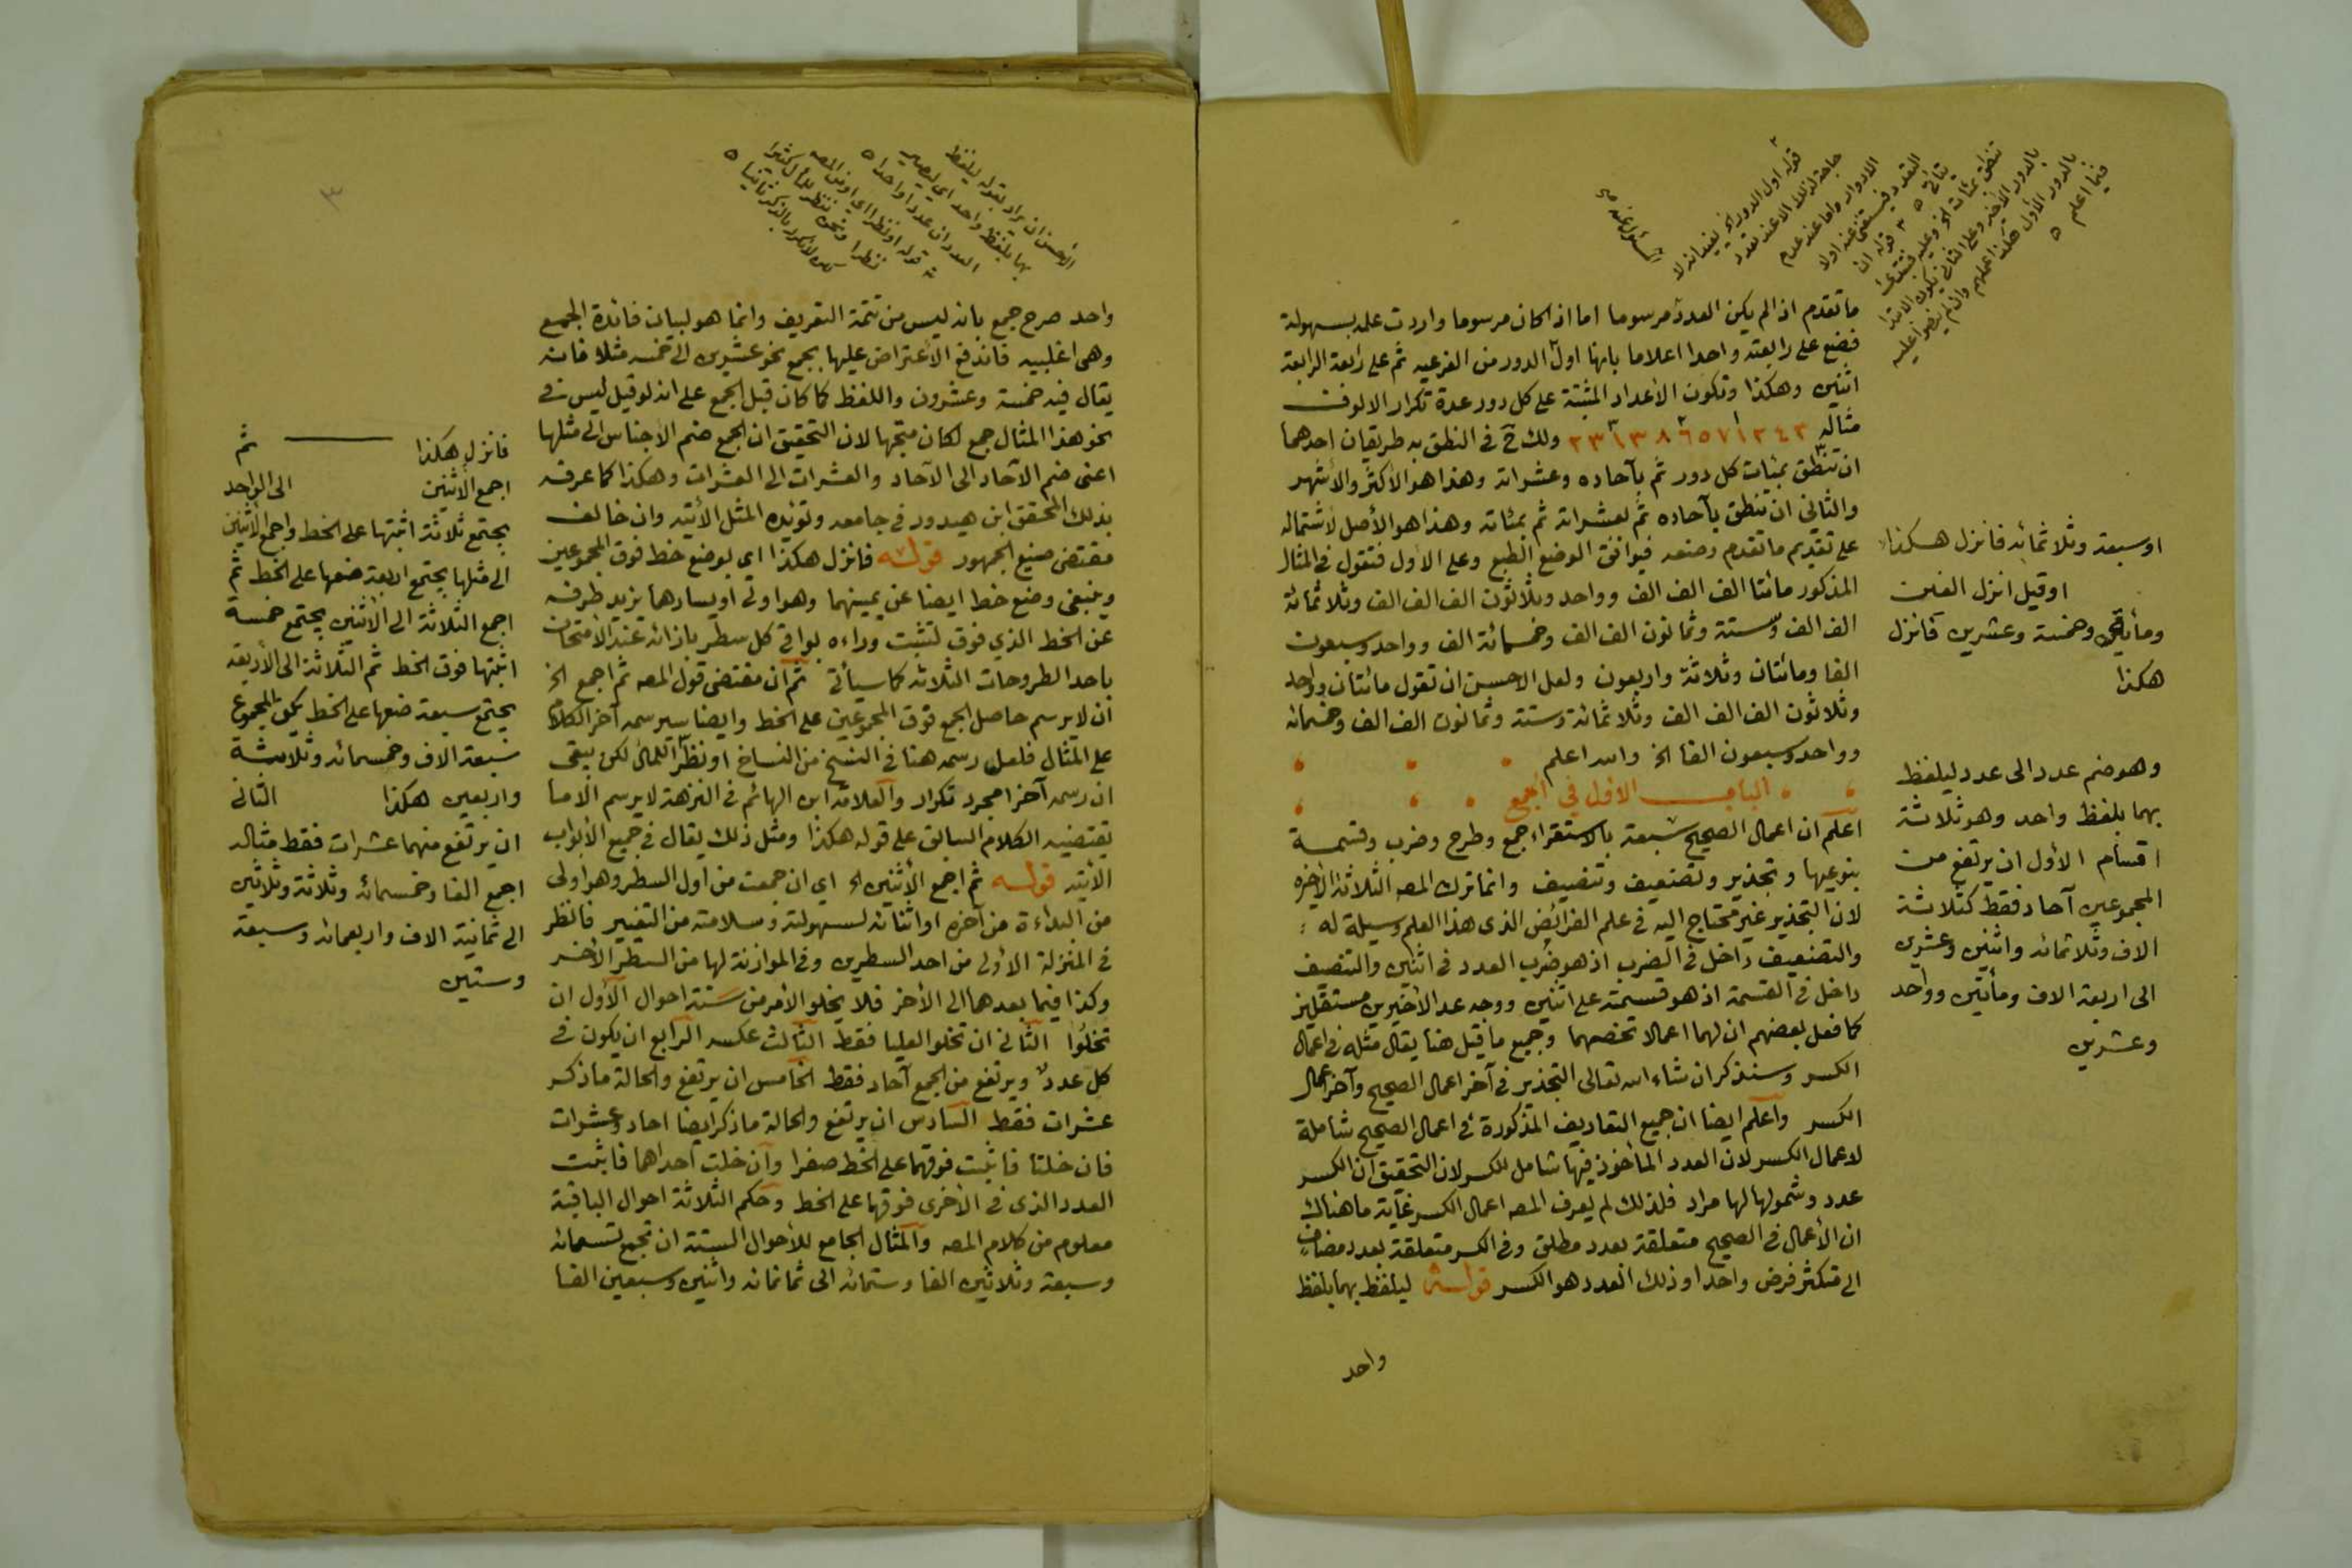 ما تقدم اذا لم يكن العدد مرسوما اما اذا كان مرسوما واردت علمه بسهولة
فضع على رابعته واحدا اعلاما بانها اول الدور من الفرعيه ثم على رابعة الرابعة
اثنين وهكذا وتكون الأعداد المثبتة على كل دور عدة تكرار الالوف
مثاله ٢٣١٣٨٦٥٧١٢٤٣ ولك ح في النطق به طريقان احدهما
ان تنطق بمئات كل دور ثم بآحاده وعشراته وهذا هو الأكثر والأشهر
والثاني ان تنطق بآحاده ثم بعشراته ثم بمئاته وهذا هو الأصل لاشتماله
على تقديم ما تقدم وضعه فيوافق الوضع الطبع وعلى الأول فتقول في المثال
المذكور مائتا الف الف الف وواحد وثلاثون الف الف الف وثلاثمائة
الف الف وستة وثمانون الف الف وخمسمائة الف وواحد وسبعون
الفا ومائتان وثلاثة واربعون ولعل الاحسن ان تقول مائتان وواحد
وثلاثون الف الف الف وثلاثمائة وستة وثمانون الف الف وخمسمائه
وواحد وسبعون الفا الخ والله اعلم
الباب الأول في الجمع
اعلم ان اعمال الصحيح سبعة بالاستقراء جمع وطرح وضرب وقسمة
بنوعيها وتجذير وتضعيف وتنصيف وانما ترك المصـ الثلاثة الأخيره
لان التجذير غير محتاج اليه في علم الفرائض الذى هذا العلم وسيلة له
والتضعيف داخل في الضرب اذ هو ضرب العدد في اثنين والتنصيف
داخل في القسمة اذ هو قسمة على اثنين ووجه عد الأخيرين مستقلين
كما فعل بعضهم ان لهما اعمالا تخصهما وجميع ما قيل هنا يقال مثله في اعمال
الكسر وسنذكر ان شاء الله تعالى التجذير في آخر اعمال الصحيح وآخر اعمال
الكسر واعلم ايضا ان جميع التعاريف المذكورة في اعمال الصحيح شاملة
لاعمال الكسر لان العدد المأخوذ فيها شامل للكسر لان التحقيق ان الكسر
عدد وشمولها لها مراد فلذلك لم يعرف المصـ اعمال الكسر غاية ما هناك
ان الأعمال في الصحيح متعلقة بعدد مطلق وفي الكسر متعلقة بعدد مضاف
الى متكثر فرض واحدا وذلك العدد هو الكسر قوله ليلفظ بهما بلفظ
واحد
او سبعة وثلاثمائه فانزل هكذا
او قيل انزل الفين
وخمسة وعشرين فانزل
هكذا
وهو ضم عدد الى عدد ليلفظ
بهما بلفظ واحد وهو ثلاثة
اقسام الأول ان يرتفع من
المجموعين آحاد فقط كثلاثة
الاف وثلاثمائه واثنين وعشرين
الى اربعة الاف ومأتين وواحد
وعشرين
واحد صرح جمع بانه ليس من تتمة التعريف وانما هو لبيان فائدة الجمع
وهى اغلبيه فاندفع الأعتراض عليها بجمع نحو عشرين الى خمسه مثلا فانه
يقال فيه خمسة وعشرون واللفظ كما كان قبل الجمع على انه لو قيل ليس في
نحو هذا المثال جمع لكان متجها لان التحقيق ان الجمع ضم الأجناس الى مثلها
اعنى ضم الآحاد الى الآحاد والعشرات الى العشرات وهكذا كما عرفه
بذلك المحقق ابن هيدور في جامعه وتؤيده المثل الأتيه وان خالف
مقتضى صنيع الجمهور قوله فانزل هكذا اي بوضع خط فوق المجموعين
وينبغى وضع خط ايضا عن يمينهما وهو اولى او يسارهما يزيد طرفه
عن الخط الذي فوق لتثبت وراءه بواقي كل سطر بازائه عند الأمتحان
باحد الطروحات الثلاثه كما سيأتي ثم ان مقتضى قول المصـ ثم اجمع الخ
ان لا يرسم حاصل الجمع فوق المجموعين على الخط وايضا سيرسمه آخر الكلام
على المثال فلعل رسمه هنا في النسخ من النساخ او نظرا للمال لكن يبقى
ان رسمه آخرا مجرد تكرار والعلامة ابن الهائم في النزهة لا يرسم الا ما
يقتضيه الكلام السابق على قوله هكذا ومثل ذلك يقال في جميع الأبواب
الأتيه قوله ثم اجمع الأثنين الخ اي ان جمعت من اول السطر وهو اولى
من البداءة من آخره او اثنائه لسهولته وسلامته من التغيير فانظر
في المنزلة الأولى من احد السطرين وفي الموازنة لها من السطر الأخر
وكذا فيما بعدهما الى الأخر فلا يخلو الأمر من ستة احوال الأول ان
تخلوا الثاني ان تخلو العليا فقط الثالث عكسه الرابع ان يكون في
كل عدد ويرتفع من الجمع آحاد فقط الخامس ان يرتفع والحالة ما ذكر
عشرات فقط السادس ان يرتفع والحالة ما ذكر ايضا احاد وعشرات
فان خلتا فاثبت فوقهما على الخط صفرا وان خلت احداهما فاثبت
العدد الذى في الأخرى فوقهما على الخط وحكم الثلاثة احوال الباقية
معلوم من كلام المصـ والمثال الجامع للأحوال الستة ان تجمع تسعمائه
وسبعة وثلاثين الفا وستمائه الى ثمانمائه واثنين وسبعين الفا
فانزل هكذا ثم
اجمع الأثنين الى الواحد
يجتمع ثلاثة اثبتها على الخط واجمع الأثنين
الى مثلها يجتمع اربعة ضعها على الخط ثم
اجمع الثلاثة الى الأثنين يجتمع خمسة
اثبتها فوق الخط ثم الثلاثة الى الأربعة
يجتمع سبعة ضعها على الخط يكون المجموع
سبعة الاف وخمسمائه وثلاثة
واربعين هكذا الثاني
ان يرتفع منهما عشرات فقط مثاله
اجمع الفا وخمسمائه وثلاثة وثلاثين
الى ثمانية الاف واربعمائه وسبعة
وستين
٣